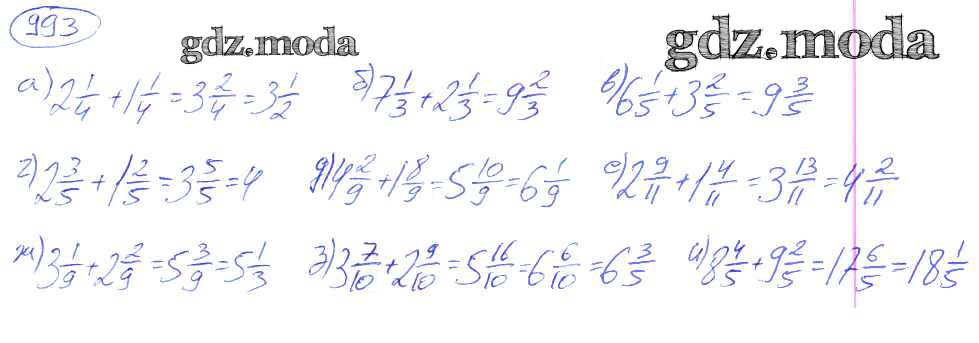 993
gdz.moda gdz.moda
а) 2 1/4 + 1 1/4 = 3 2/4 = 3 1/2 б) 7 1/3 + 2 1/3 = 9 2/3 в) 6 1/5 + 3 2/5 = 9 3/5
г) 2 3/5 + 1 2/5 = 3 5/5 = 4 д) 4 2/9 + 1 8/9 = 5 10/9 = 6 1/9 е) 2 9/11 + 1 4/11 = 3 13/11 = 4 2/11
ж) 3 1/9 + 2 2/9 = 5 3/9 = 5 1/3 з) 3 7/10 + 2 9/10 = 5 16/10 = 6 6/10 = 6 3/5 и) 8 4/5 + 9 2/5 = 17 6/5 = 18 1/5